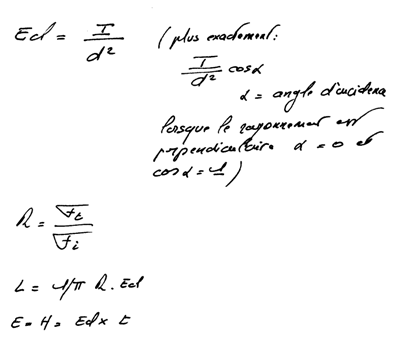 Ecl = I / d² (plus exactement:
I / d² cos α
α = angle d'incidence
lorsque le rayonnement est
perpendiculaire α = 0 et
cos α = 1)
R = √t / √i
L = 1/π R . Ecl
E = H = Ecl x t